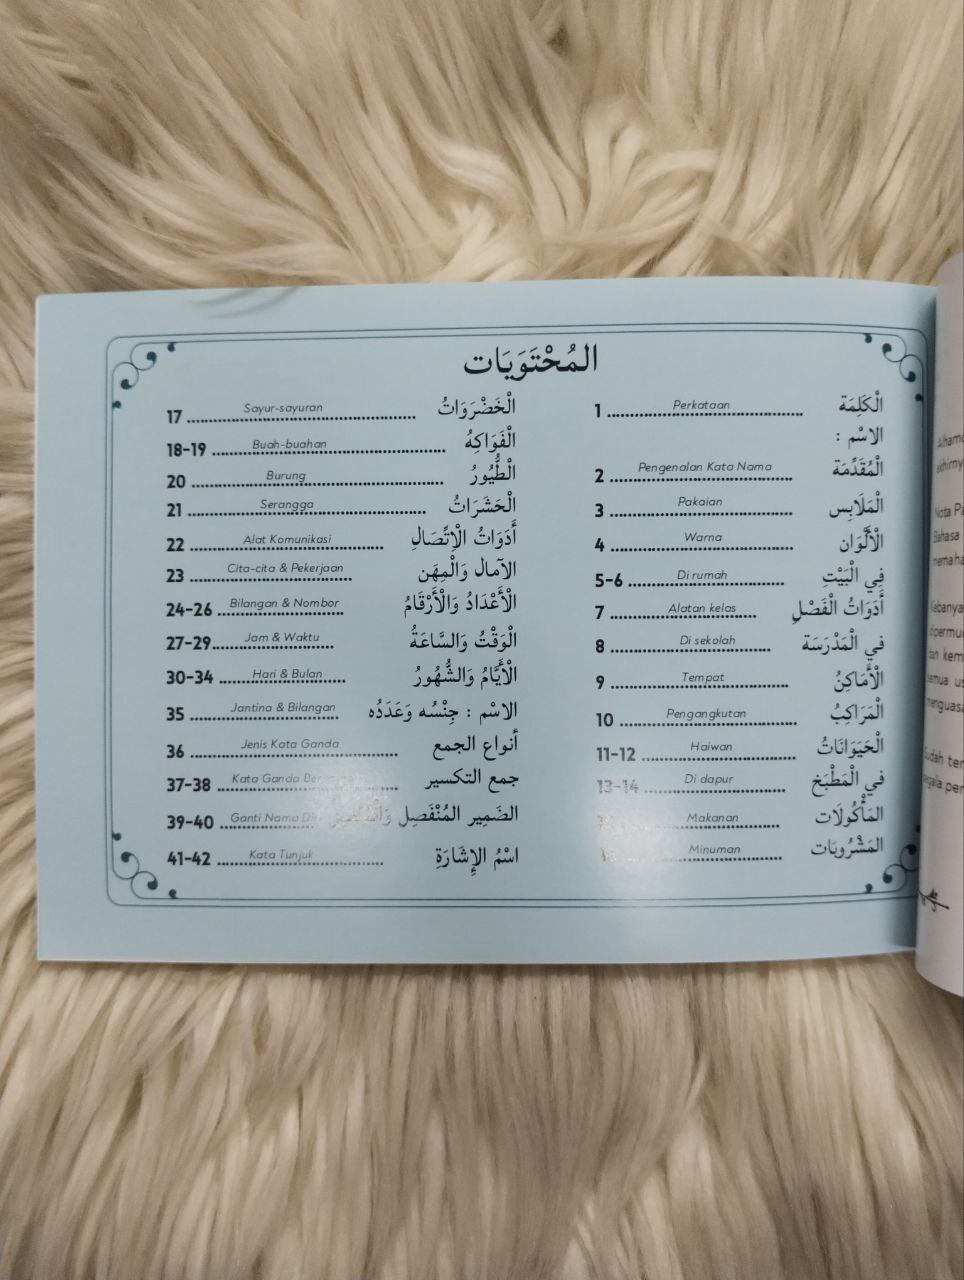 المُحْتَوَيَات
الْكَلِمَة Perkataan 1
الاسْم :
الْمُقَدِّمَة Pengenalan Kata Nama 2
الْمَلَابِس Pakaian 3
الْأَلْوَان Warna 4
فِي الْبَيْتِ Di rumah 5-6
أَدَوَاتُ الْفَصْلِ Alatan kelas 7
فِي الْمَدْرَسَة Di sekolah 8
الْأَمَاكِنُ Tempat 9
الْمَرَاكِبُ Pengangkutan 10
الْحَيَوَانَاتُ Haiwan 11-12
فِي الْمَطْبَخ Di dapur 13-14
المَأْكُولَات Makanan
المَشْرُوبَات Minuman
الْخَضْرَوَاتُ Sayur-sayuran 17
الْفَوَاكِهُ Buah-buahan 18-19
الْطُّيُورُ Burung 20
الْحَشَرَاتُ Serangga 21
أَدَوَاتُ الْاِتِّصَالِ Alat Komunikasi 22
الآمال وَالْمِهَن Cita-cita & Pekerjaan 23
الْأَعْدَادُ وَالْأَرْقَامُ Bilangan & Nombor 24-26
الْوَقْتُ وَالسَّاعَةُ Jam & Waktu 27-29
الْأَيَّامُ وَالشُّهُورُ Hari & Bulan 30-34
الاسْم : جِنْسُه وَعَدَدُه Jantina & Bilangan 35
أنواع الجمع Jenis Kata Ganda 36
جمع التكسير Kata Ganda 37-38
الضَمِير المُنْفَصِل Ganti Nama 39-40
اسْمُ الإِشَارَة Kata Tunjuk 41-42
Nota
Bahasa